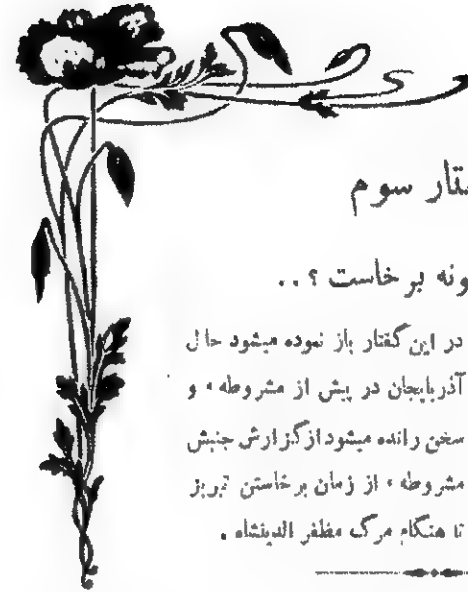 ستار سوم
ونه برخاست ؟ . .
در این گفتار باز نموده میشود حال
آذربایجان در پیش از مشروطه ، و
سخن رانده میشود از گزارش جنبش
مشروطه ، از زمان برخاستن تبریز
تا هنگام مرگ مظفر الدینشاه .